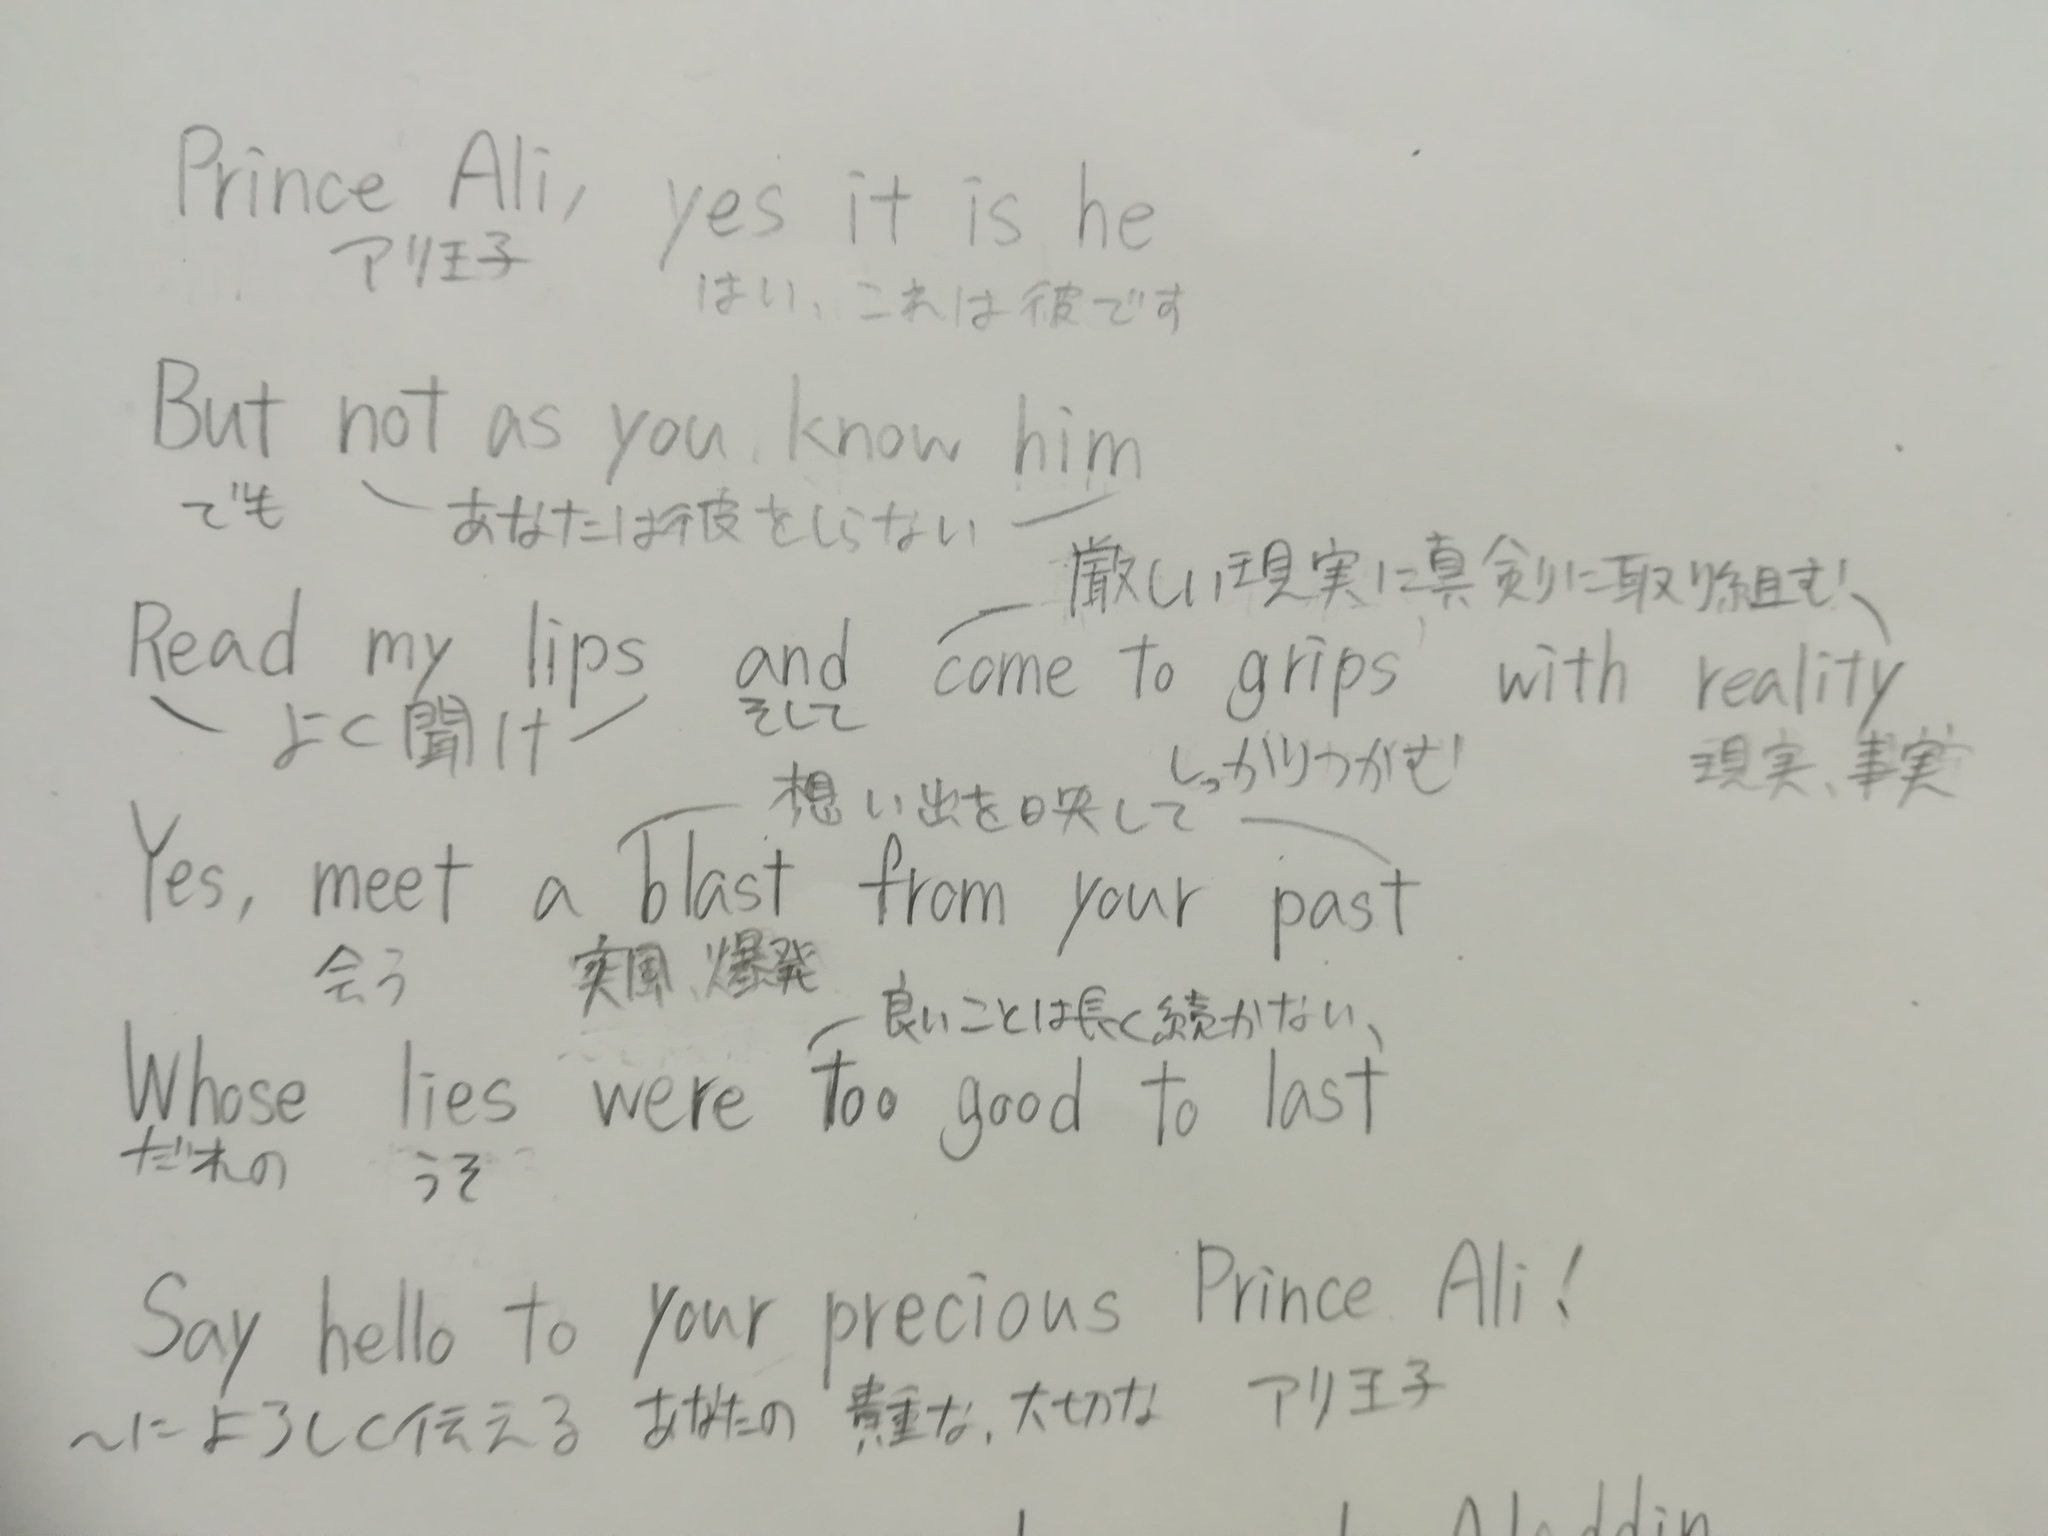 Prince Ali, yes it is he
アリ王子 はい、これは彼です
But not as you know him
でも あなたは彼をしらない
厳しい現実に真剣に取り組む
Read my lips and come to grips with reality
よく聞け そして しっかりつかむ 現実、事実
想い出を映して
Yes, meet a blast from your past
会う 突風、爆発
良いことは長く続かない
Whose lies were too good to last
だれの うそ
Say hello to your precious Prince Ali!
〜によろしく伝える あなたの 貴重な、大切な アリ王子
Aladdin